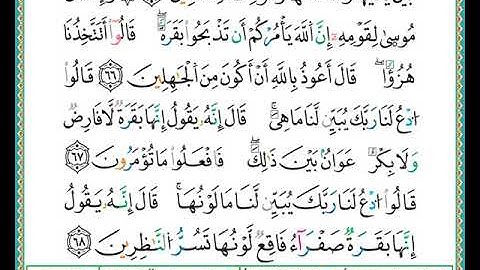 مُوسَىٰ لِقَوْمِهِۦٓ إِنَّ ٱللَّهَ يَأْمُرُكُمْ أَن تَذْبَحُوا۟ بَقَرَةً ۖ قَالُوٓا۟ أَتَتَّخِذُنَا
هُزُؤًا ۖ قَالَ أَعُوذُ بِٱللَّهِ أَنْ أَكُونَ مِنَ ٱلْجَٰهِلِينَ ٦٦ قَالُوا۟
ٱدْعُ لَنَا رَبَّكَ يُبَيِّن لَّنَا مَا هِىَ ۚ قَالَ إِنَّهُۥ يَقُولُ إِنَّهَا بَقَرَةٌ لَّا فَارِضٌ
وَلَا بِكْرٌ عَوَانٌۢ بَيْنَ ذَٰلِكَ ۖ فَٱفْعَلُوا۟ مَا تُؤْمَرُونَ ٦٧
قَالُوا۟ ٱدْعُ لَنَا رَبَّكَ يُبَيِّن لَّنَا مَا لَوْنُهَا ۚ قَالَ إِنَّهُۥ يَقُولُ
إِنَّهَا بَقَرَةٌ صَفْرَآءُ فَاقِعٌ لَّوْنُهَا تَسُرُّ ٱلنَّٰظِرِينَ ٦٨